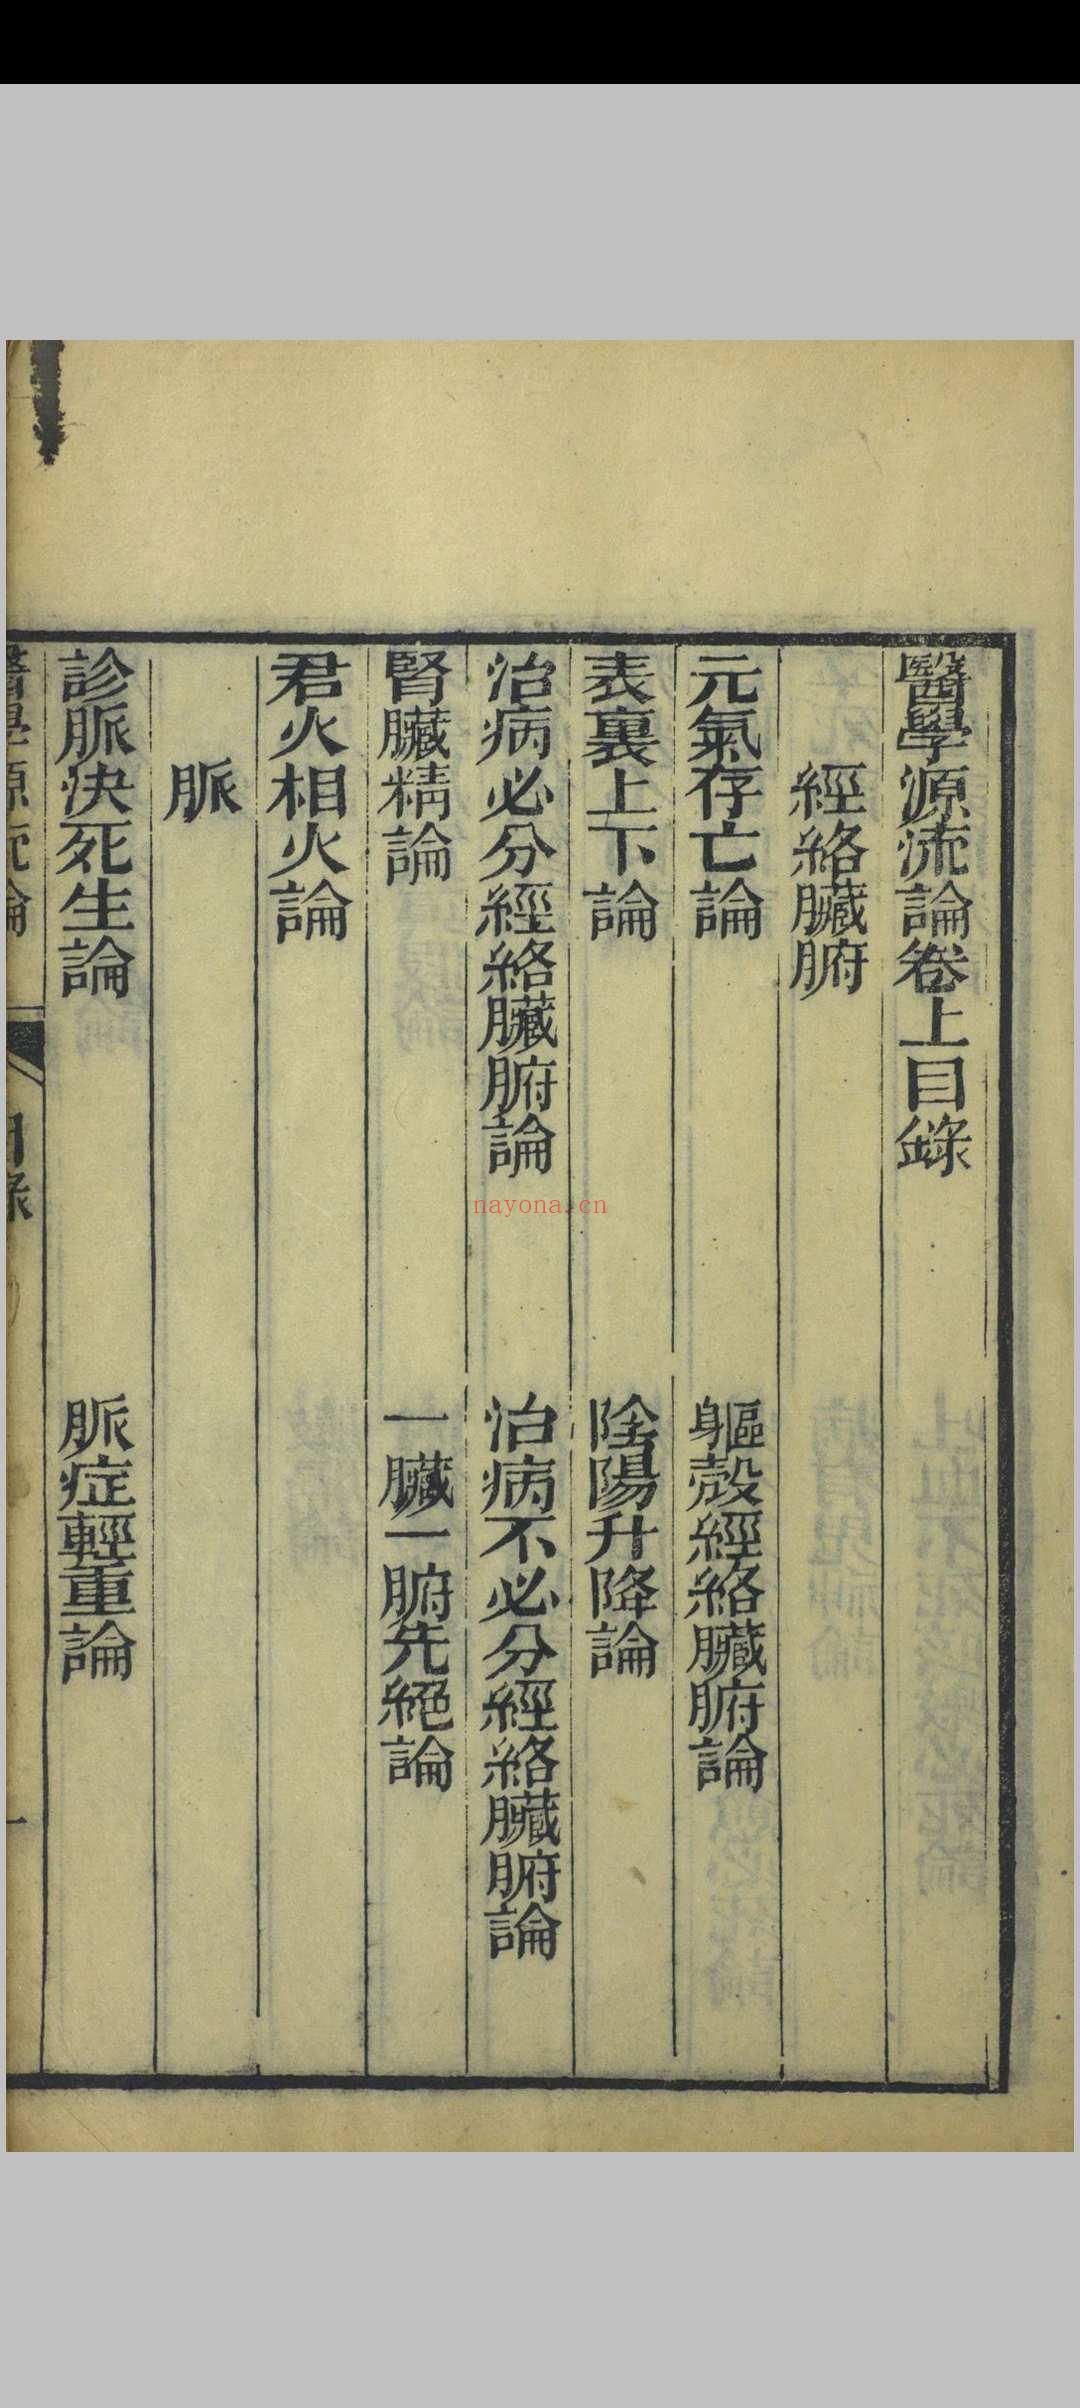 醫學源流論卷上目錄
經絡臟腑
元氣存亡論　軀殼經絡臟腑論
表裏上下論　陰陽升降論
治病必分經絡臟腑論　治病不必分經絡臟腑論
腎臟精論　一臟一腑先絕論
君火相火論
脈
診脈決死生論　脈症輕重論
醫學源流論
目錄
一
nayona.cn